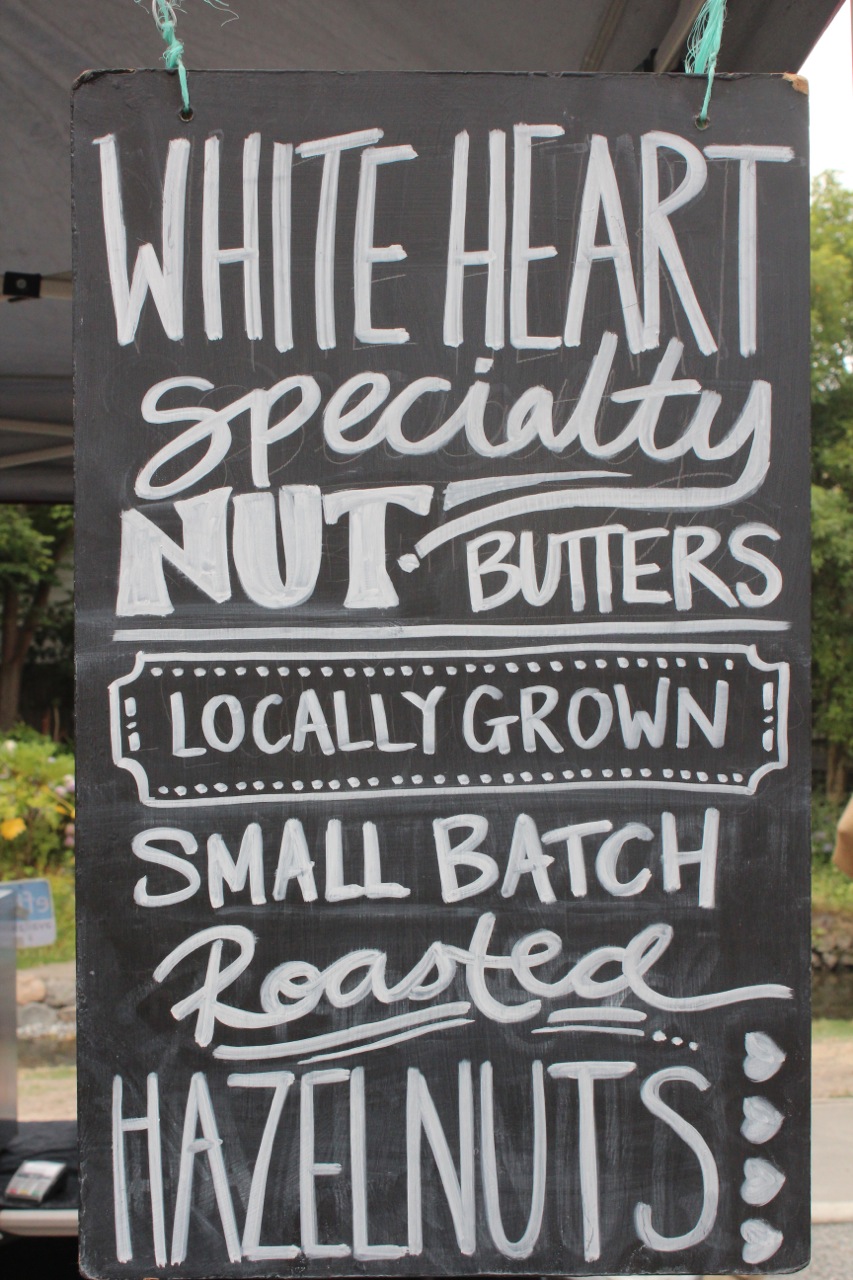 WHITE HEART
Specialty
NUT BUTTERS
LOCALLY GROWN
SMALL BATCH
Roasted
HAZELNUTS